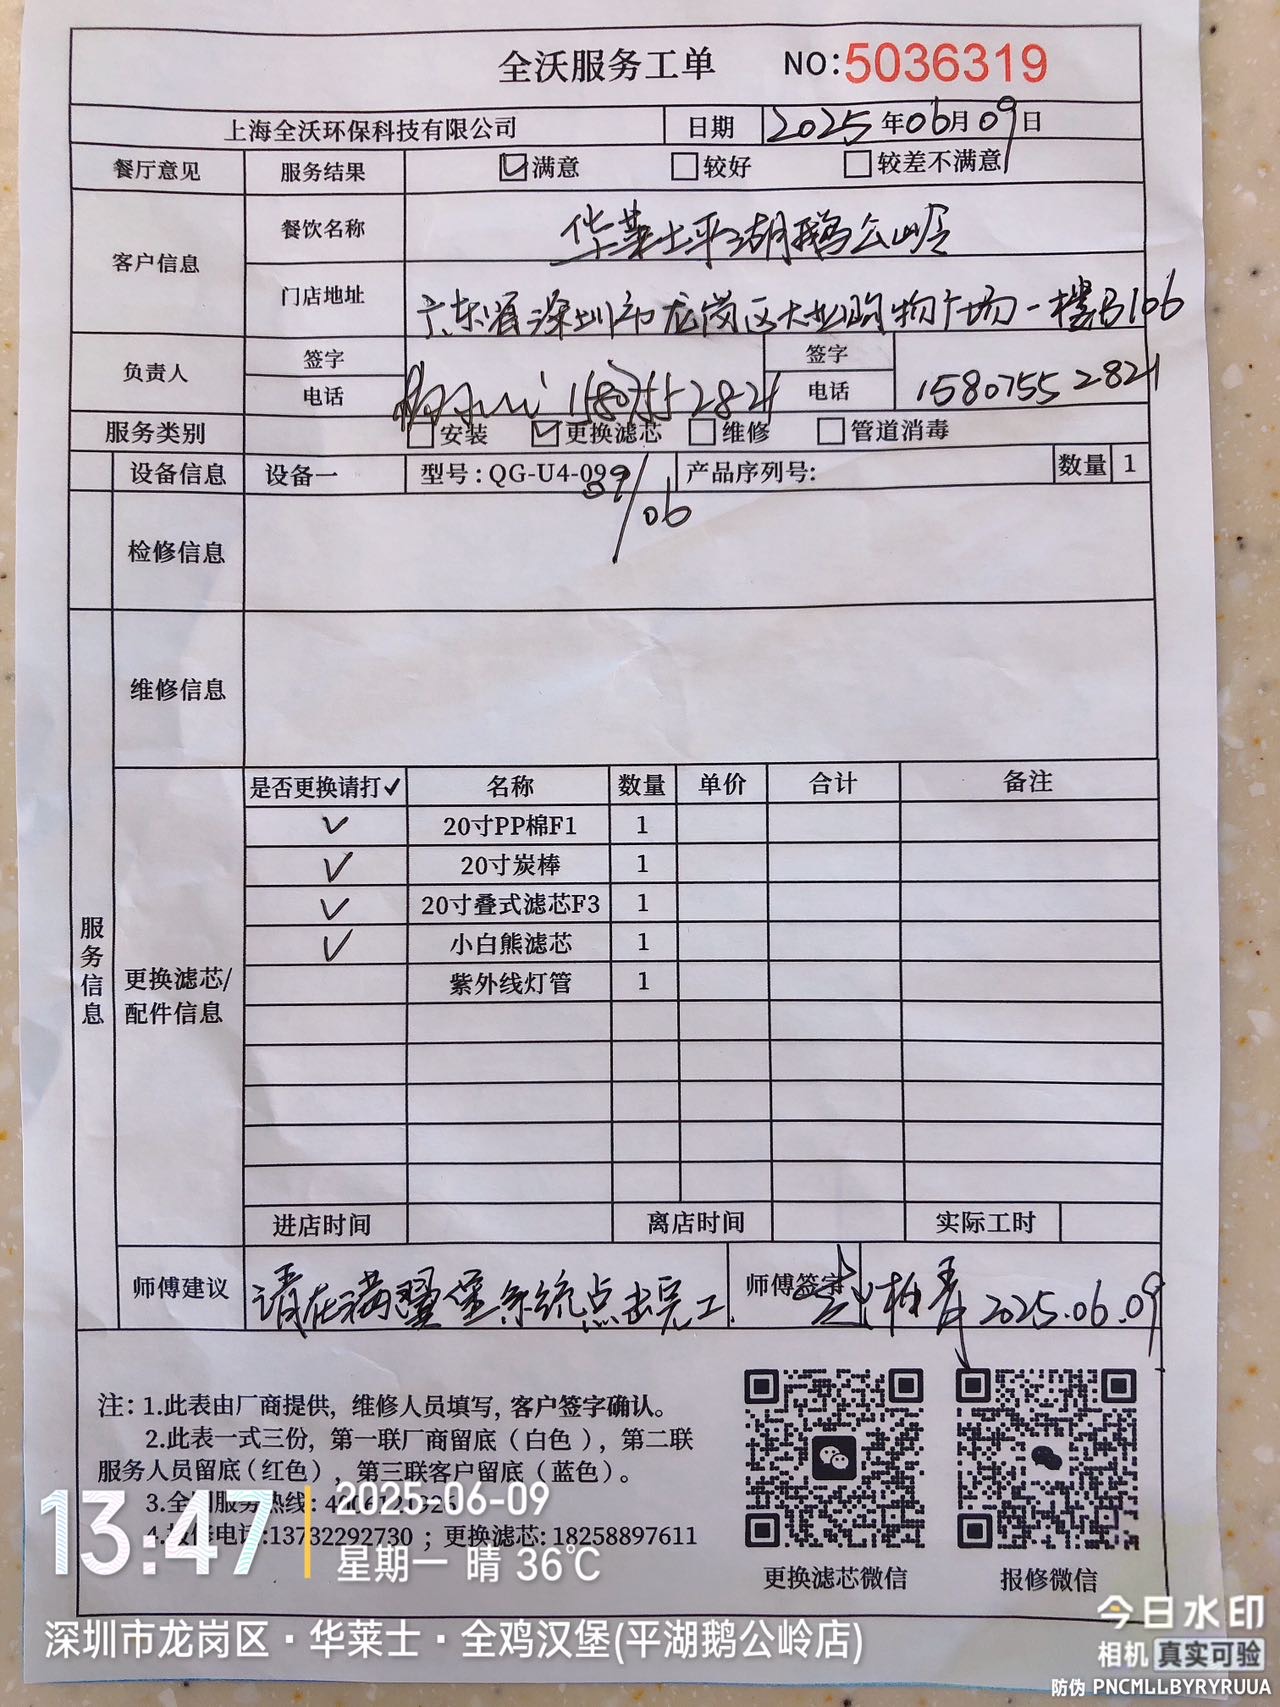 全沃服务工单 NO:5036319
上海全沃环保科技有限公司 日期 2025年06月09日
餐厅意见 服务结果 ☑满意 □较好 □较差不满意
客户信息 餐饮名称 华莱士平湖鹅公岭
门店地址 广东省深圳市龙岗区大业购物广场一楼B106
负责人 签字 签字
电话 15807552821 电话 15807552821
服务类别 □安装 ☑更换滤芯 □维修 □管道消毒
设备信息 设备一 型号:QG-U4-09 产品序列号: 数量 1
09/06
检修信息
维修信息
服务信息
更换滤芯/配件信息
是否更换请打✓ 名称 数量 单价 合计 备注
✓ 20寸PP棉F1 1
✓ 20寸炭棒 1
✓ 20寸叠式滤芯F3 1
✓ 小白熊滤芯 1
紫外线灯管 1
进店时间 离店时间 实际工时
师傅建议 请在满翼堡系统点击完工. 师傅签字 2025.06.09
注:1.此表由厂商提供,维修人员填写,客户签字确认。
2.此表一式三份,第一联厂商留底(白色),第二联
服务人员留底(红色),第三联客户留底(蓝色)。
3.全国服务热线:
4.报修电话:13732292730;更换滤芯:18258897611
更换滤芯微信 报修微信
13:47 2025-06-09
星期一 晴 36℃
深圳市龙岗区·华莱士·全鸡汉堡(平湖鹅公岭店)
今日水印
相机 真实可验
防伪 PNCMLLBYRYRUUA